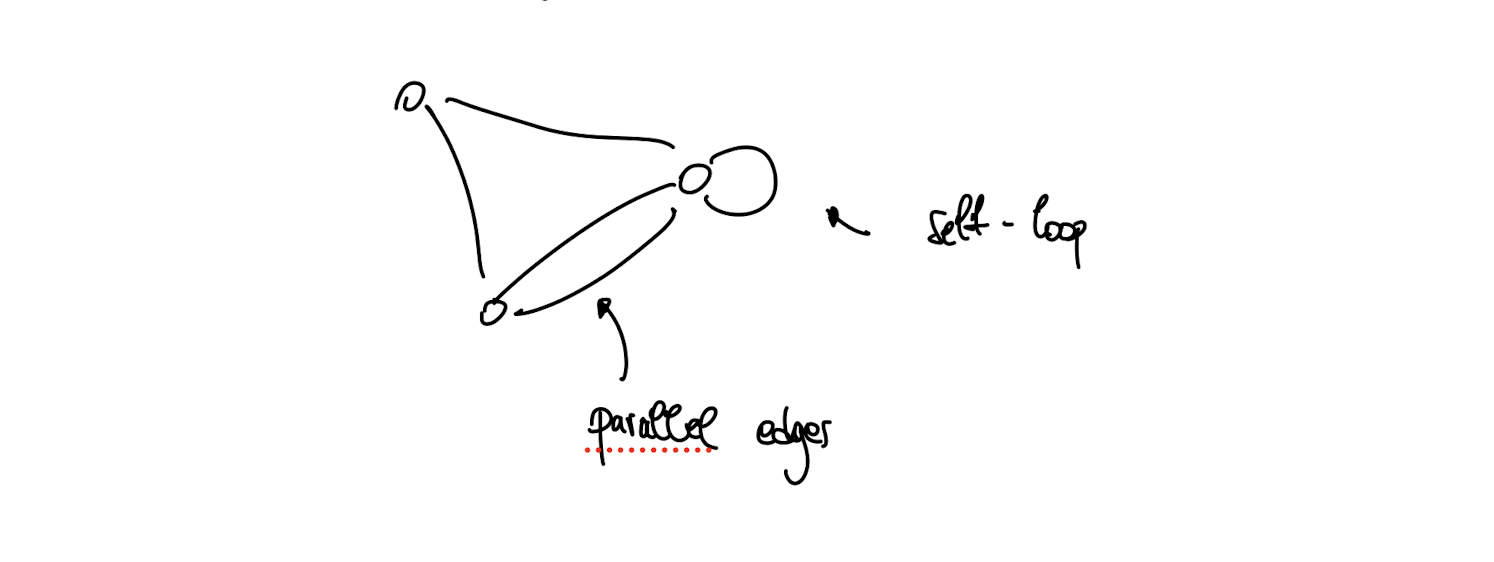 self-loop
parallel edges